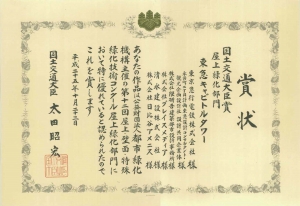 賞状
国土交通大臣賞
屋上緑化部門
東急キャピトルタワー
東京急行電鉄株式会社 様
株式会社プレイスメディア 様
清水建設株式会社 様
株式会社日比谷アメニス 様
あなたの作品は公益財団法人都市緑化
機構主催の第十二回屋上壁面特殊
緑化技術コンクール屋上緑化部門に
おいて特に優れていると認められたので
これを賞します
平成二十五年十月二十三日
国土交通大臣 太田昭宏